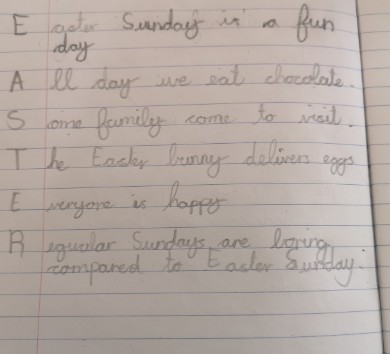 Easter Sunday is a fun
day
All day we eat chocolate.
Some family come to visit.
The Easter bunny delivers eggs
Everyone is happy
Regular Sundays are boring
compared to Easter Sunday.